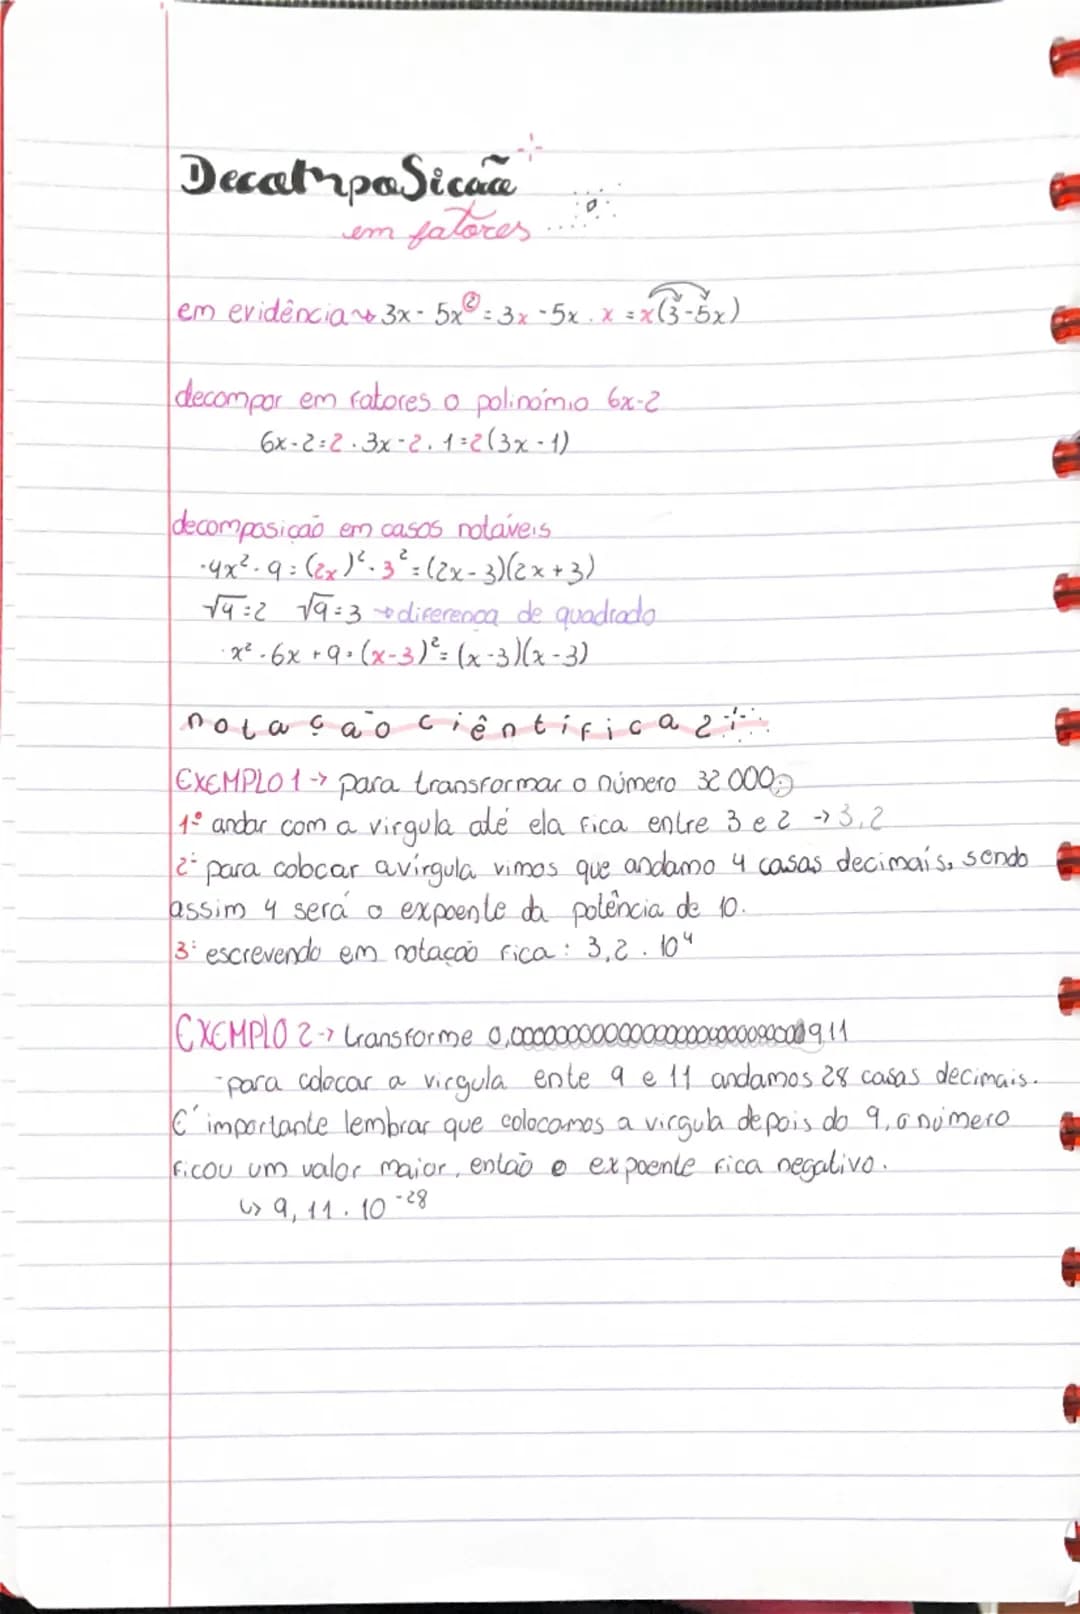 Decomposicão
em fatores
em evidência → 3x - 5x² = 3x - 5x . x = x(3-5x)
decompor em fatores o polinómio 6x-2
6x-2=2.3x-2.1=2(3x-1)
decomposição em casos notáveis
·4x²-9=(2x)²-3²=(2x-3)(2x+3)
√4=2 √9=3 → diferença de quadrado
·x²-6x+9=(x-3)²=(x-3)(x-3)
notação ciêntifica 2
EXEMPLO 1 → para transformar o número 32 000,0
1º andar com a virgula até ela fica entre 3 e 2 → 3,2
2º para colocar a vírgula vimos que andamo 4 casas decimais, sendo
assim 4 será o expoente da potência de 10.
3º escrevendo em notação fica: 3,2 . 10⁴
EXEMPLO 2 → transforme 911
-para colocar a virgula ente 9 e 11 andamos 28 casas decimais.
É importante lembrar que colocamos a virgula depois do 9, o número
ficou um valor maior, então o expoente fica negativo.
↳ 9,11 . 10⁻²⁸